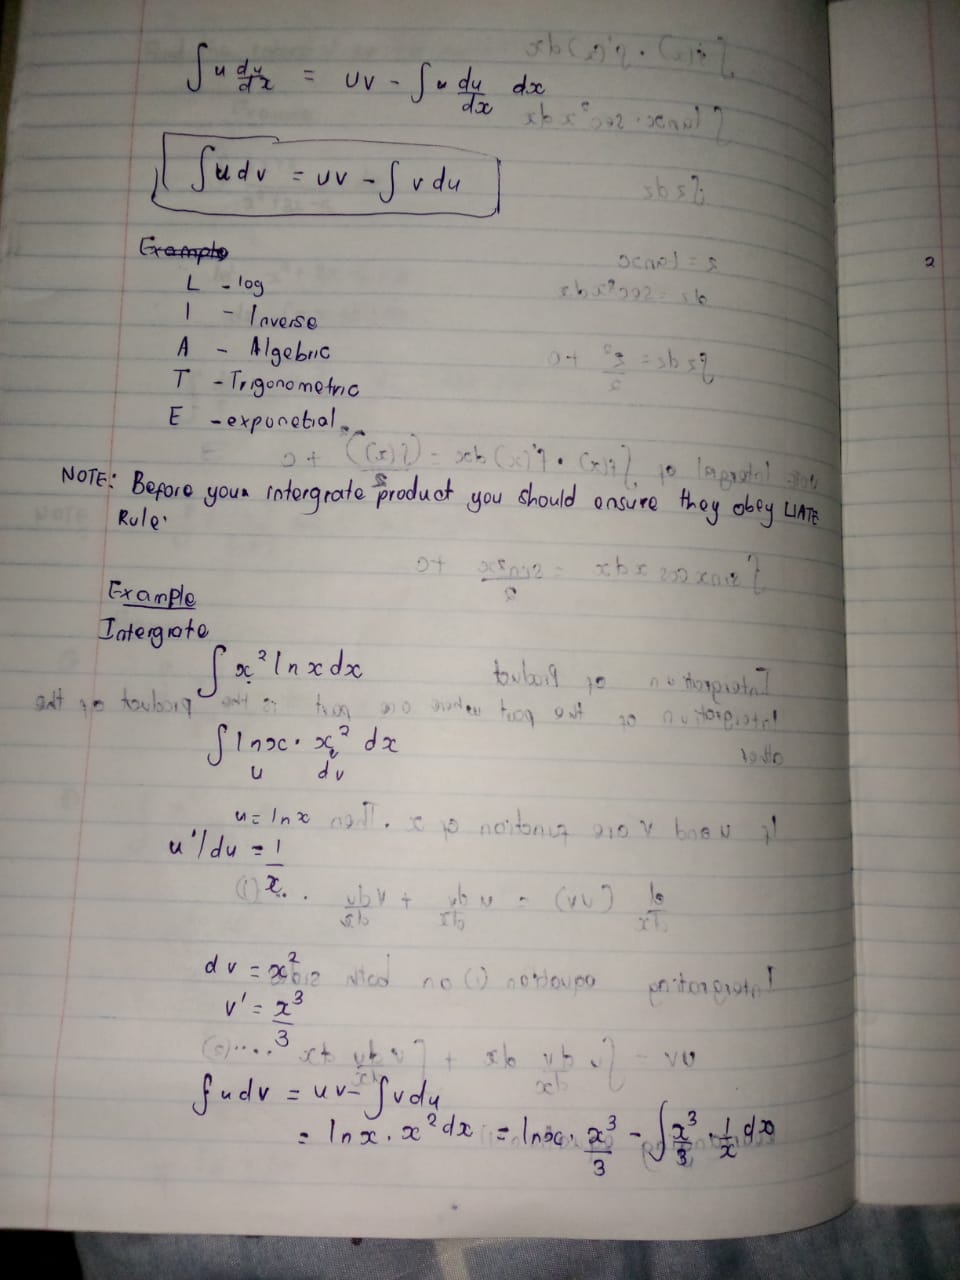 ∫ u du/dx = uv - ∫ u du/dx dx
∫ u dv = uv - ∫ v du
Example
L - log
I - Inverse
A - Algebric
T - Trigonometric
E - exponetial
NOTE: Before you intergrate product you should ensure they obey LIATE
Rule.
Example
Intergrate
∫ x² ln x dx
∫ ln x · x² dx
u dv
u = ln x
u'/du = 1/x
dv = x²
v' = x³/3
∫ u dv = uv - ∫ v du
= ln x . x² dx = ln x . x³/3 - ∫ x³/3 . 1/x dx
2